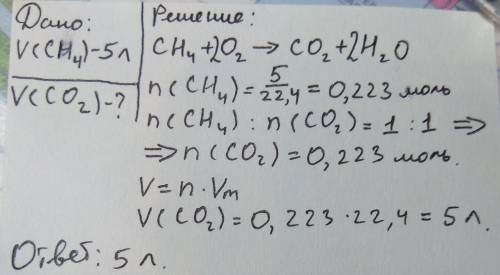 Дано:
V(CH₄)-5л
V(CO₂)-?
Решение:
CH₄+2O₂ → CO₂+2H₂O
n(CH₄)=5/22,4=0,223 моль
n(CH₄):n(CO₂)=1:1 ⇒
⇒n(CO₂)=0,223 моль.
V=n·Vm
V(CO₂)=0,223·22,4=5л.
Ответ: 5 л.